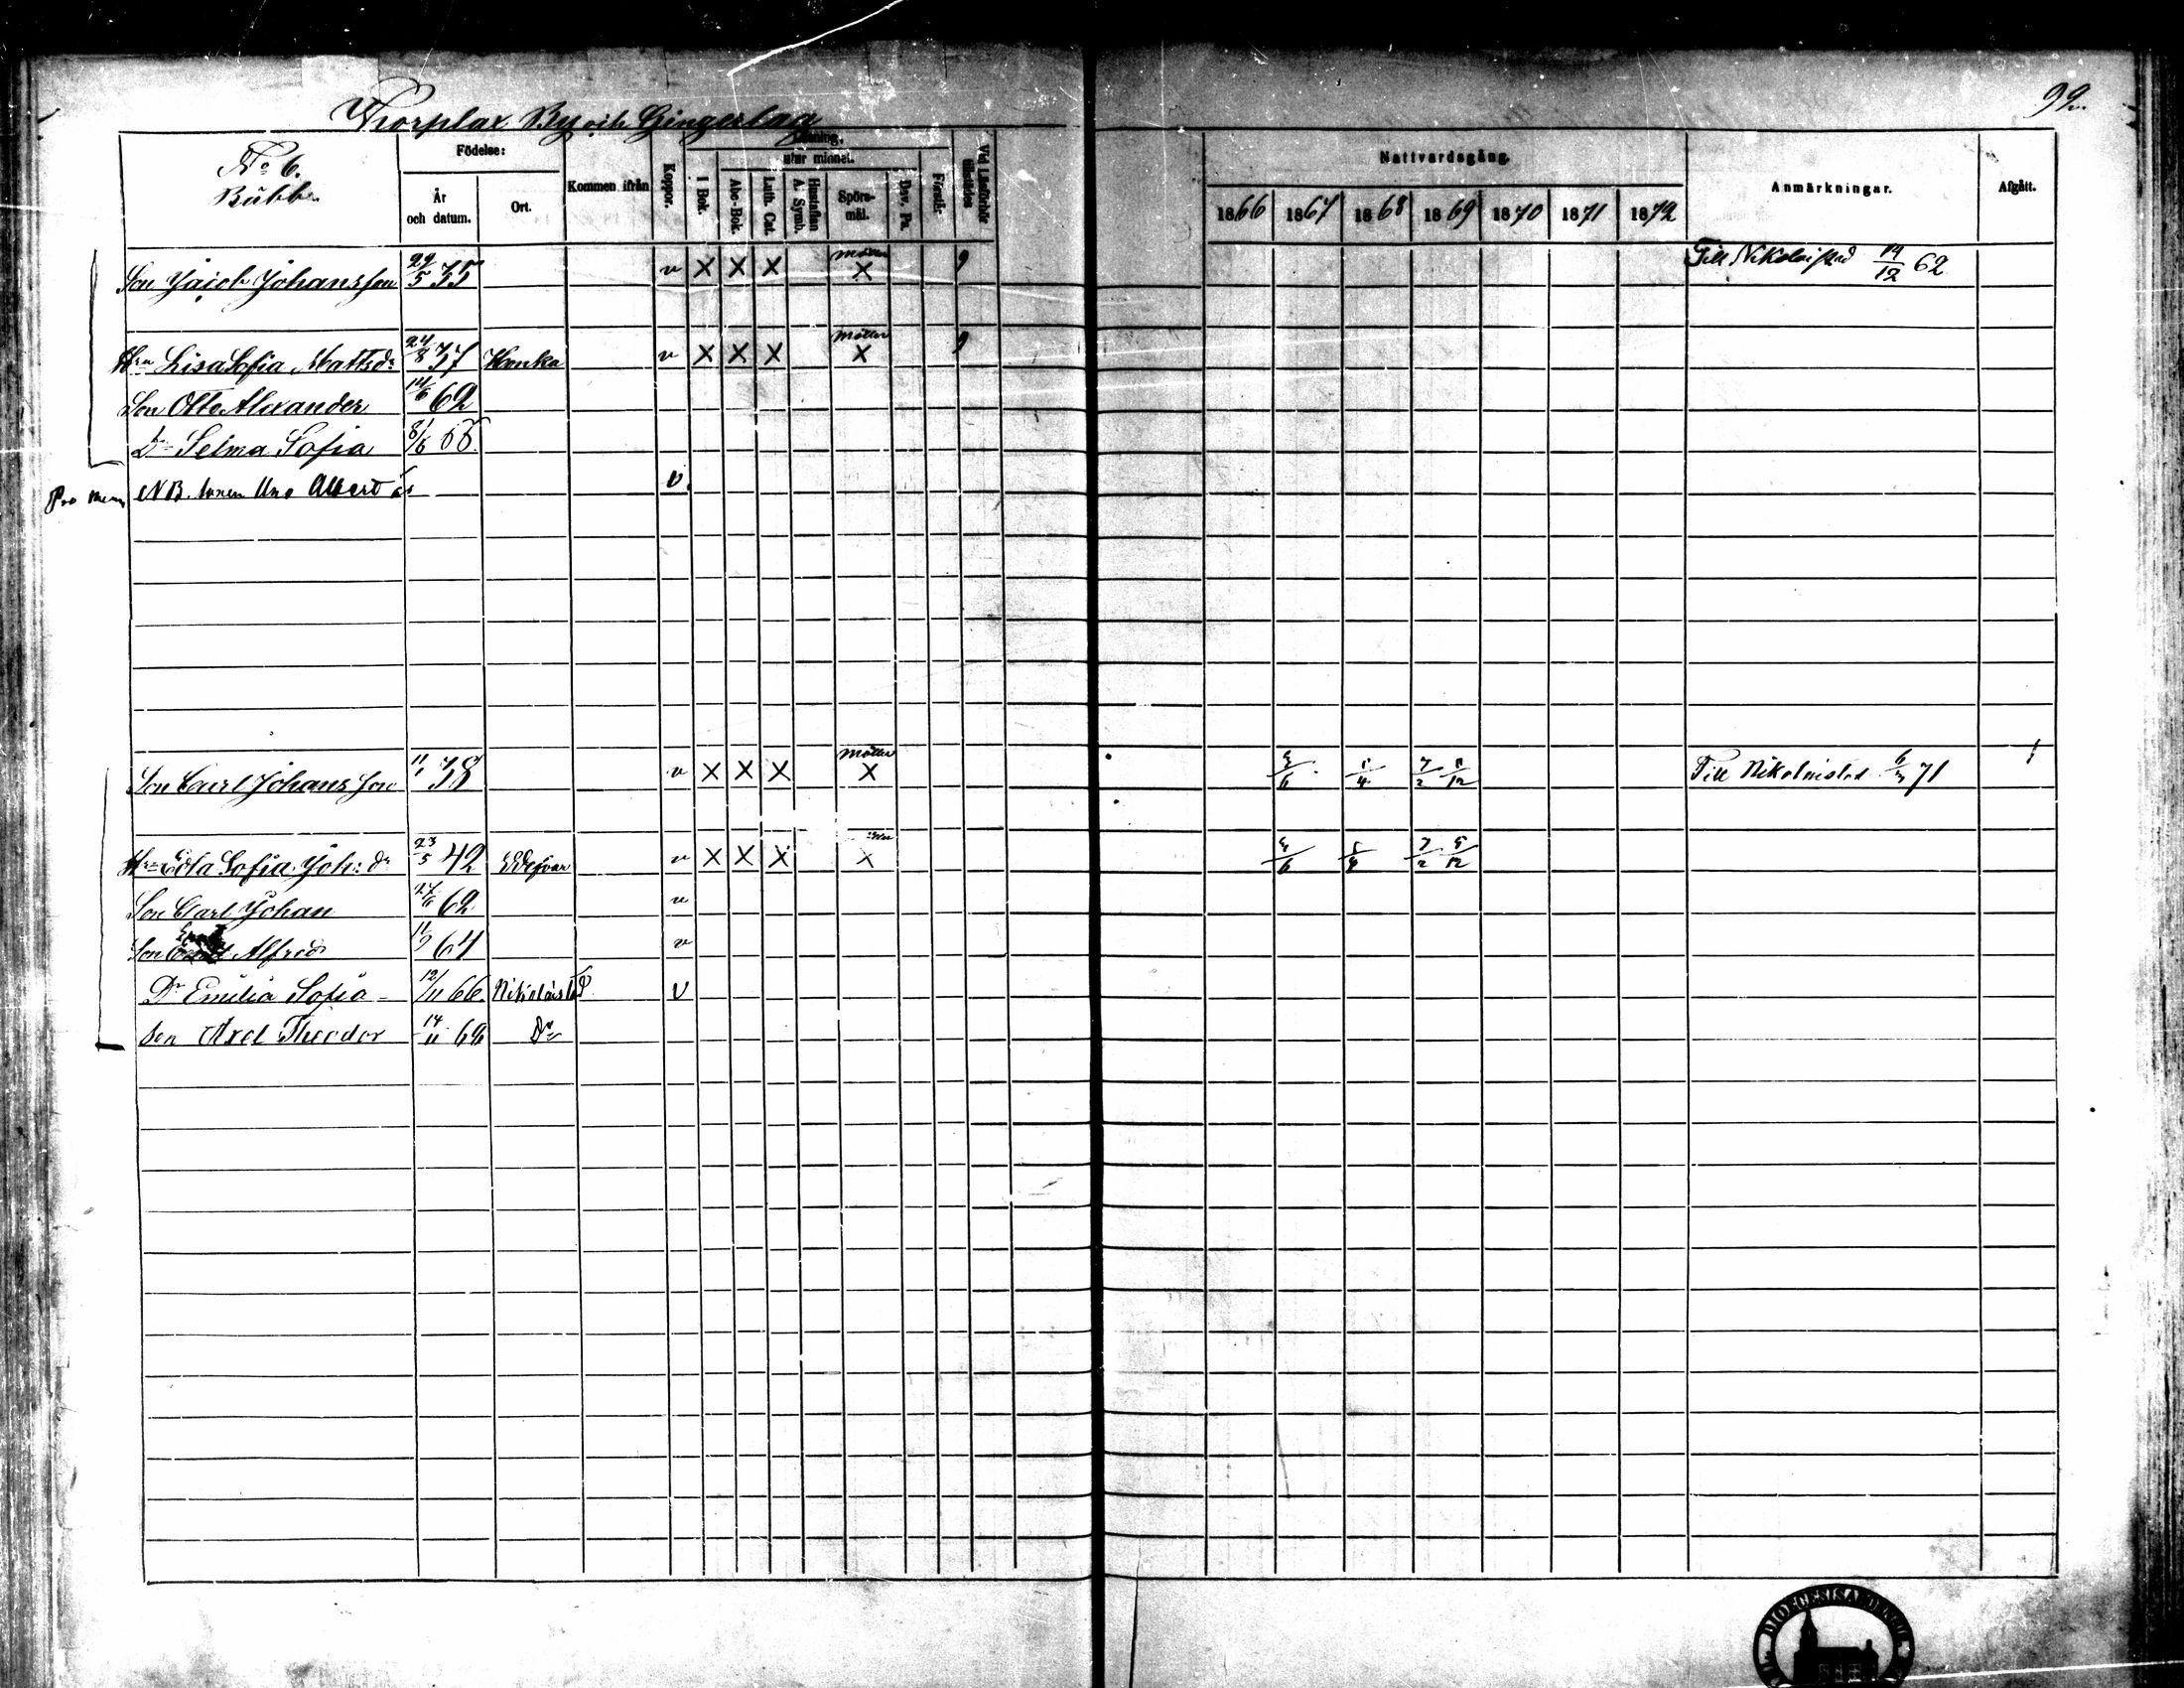 99.
Korplax By och Lingerlag
No 6.
Bübb
Födelse:
År och datum.
Ort.
Kommen ifrån
Koppor.
Läsning.
I Bok.
utur minnet.
Abc-Bok.
Luth. Cat.
Hustaflan A. Symb.
Spörsmål.
Dav. Ps.
Förstår.
Vid Läsförhör tillstädes
Nattvardsgång.
1866 1867 1868 1869 1870 1871 1872
Anmärkningar.
Afgått.
Son Jacob Johansson 29/5 35 v X X X möter X 9 Till Nikolaistad 14/12 62
Hu Lisa Sofia Mattsdr 24/8 37 Honka v X X X möter X 9
Son Otto Alexander 14/6 62
Dr Selma Sofia
Pro mem NB. sonen Uno Albert v.
Son Carl Johansson 11/1 38 v X X X möter X Till Nikolaistad 71
Hu Edla Sofia Joh: dr 23/5 42 v X X X X
Son Carl Johan 62 v
Son Alfrid 11/9 64 v
Dr Emilia Sofia 12/11 66. Nikolaistad v
Son Axel Theodor 14/11 69 Do